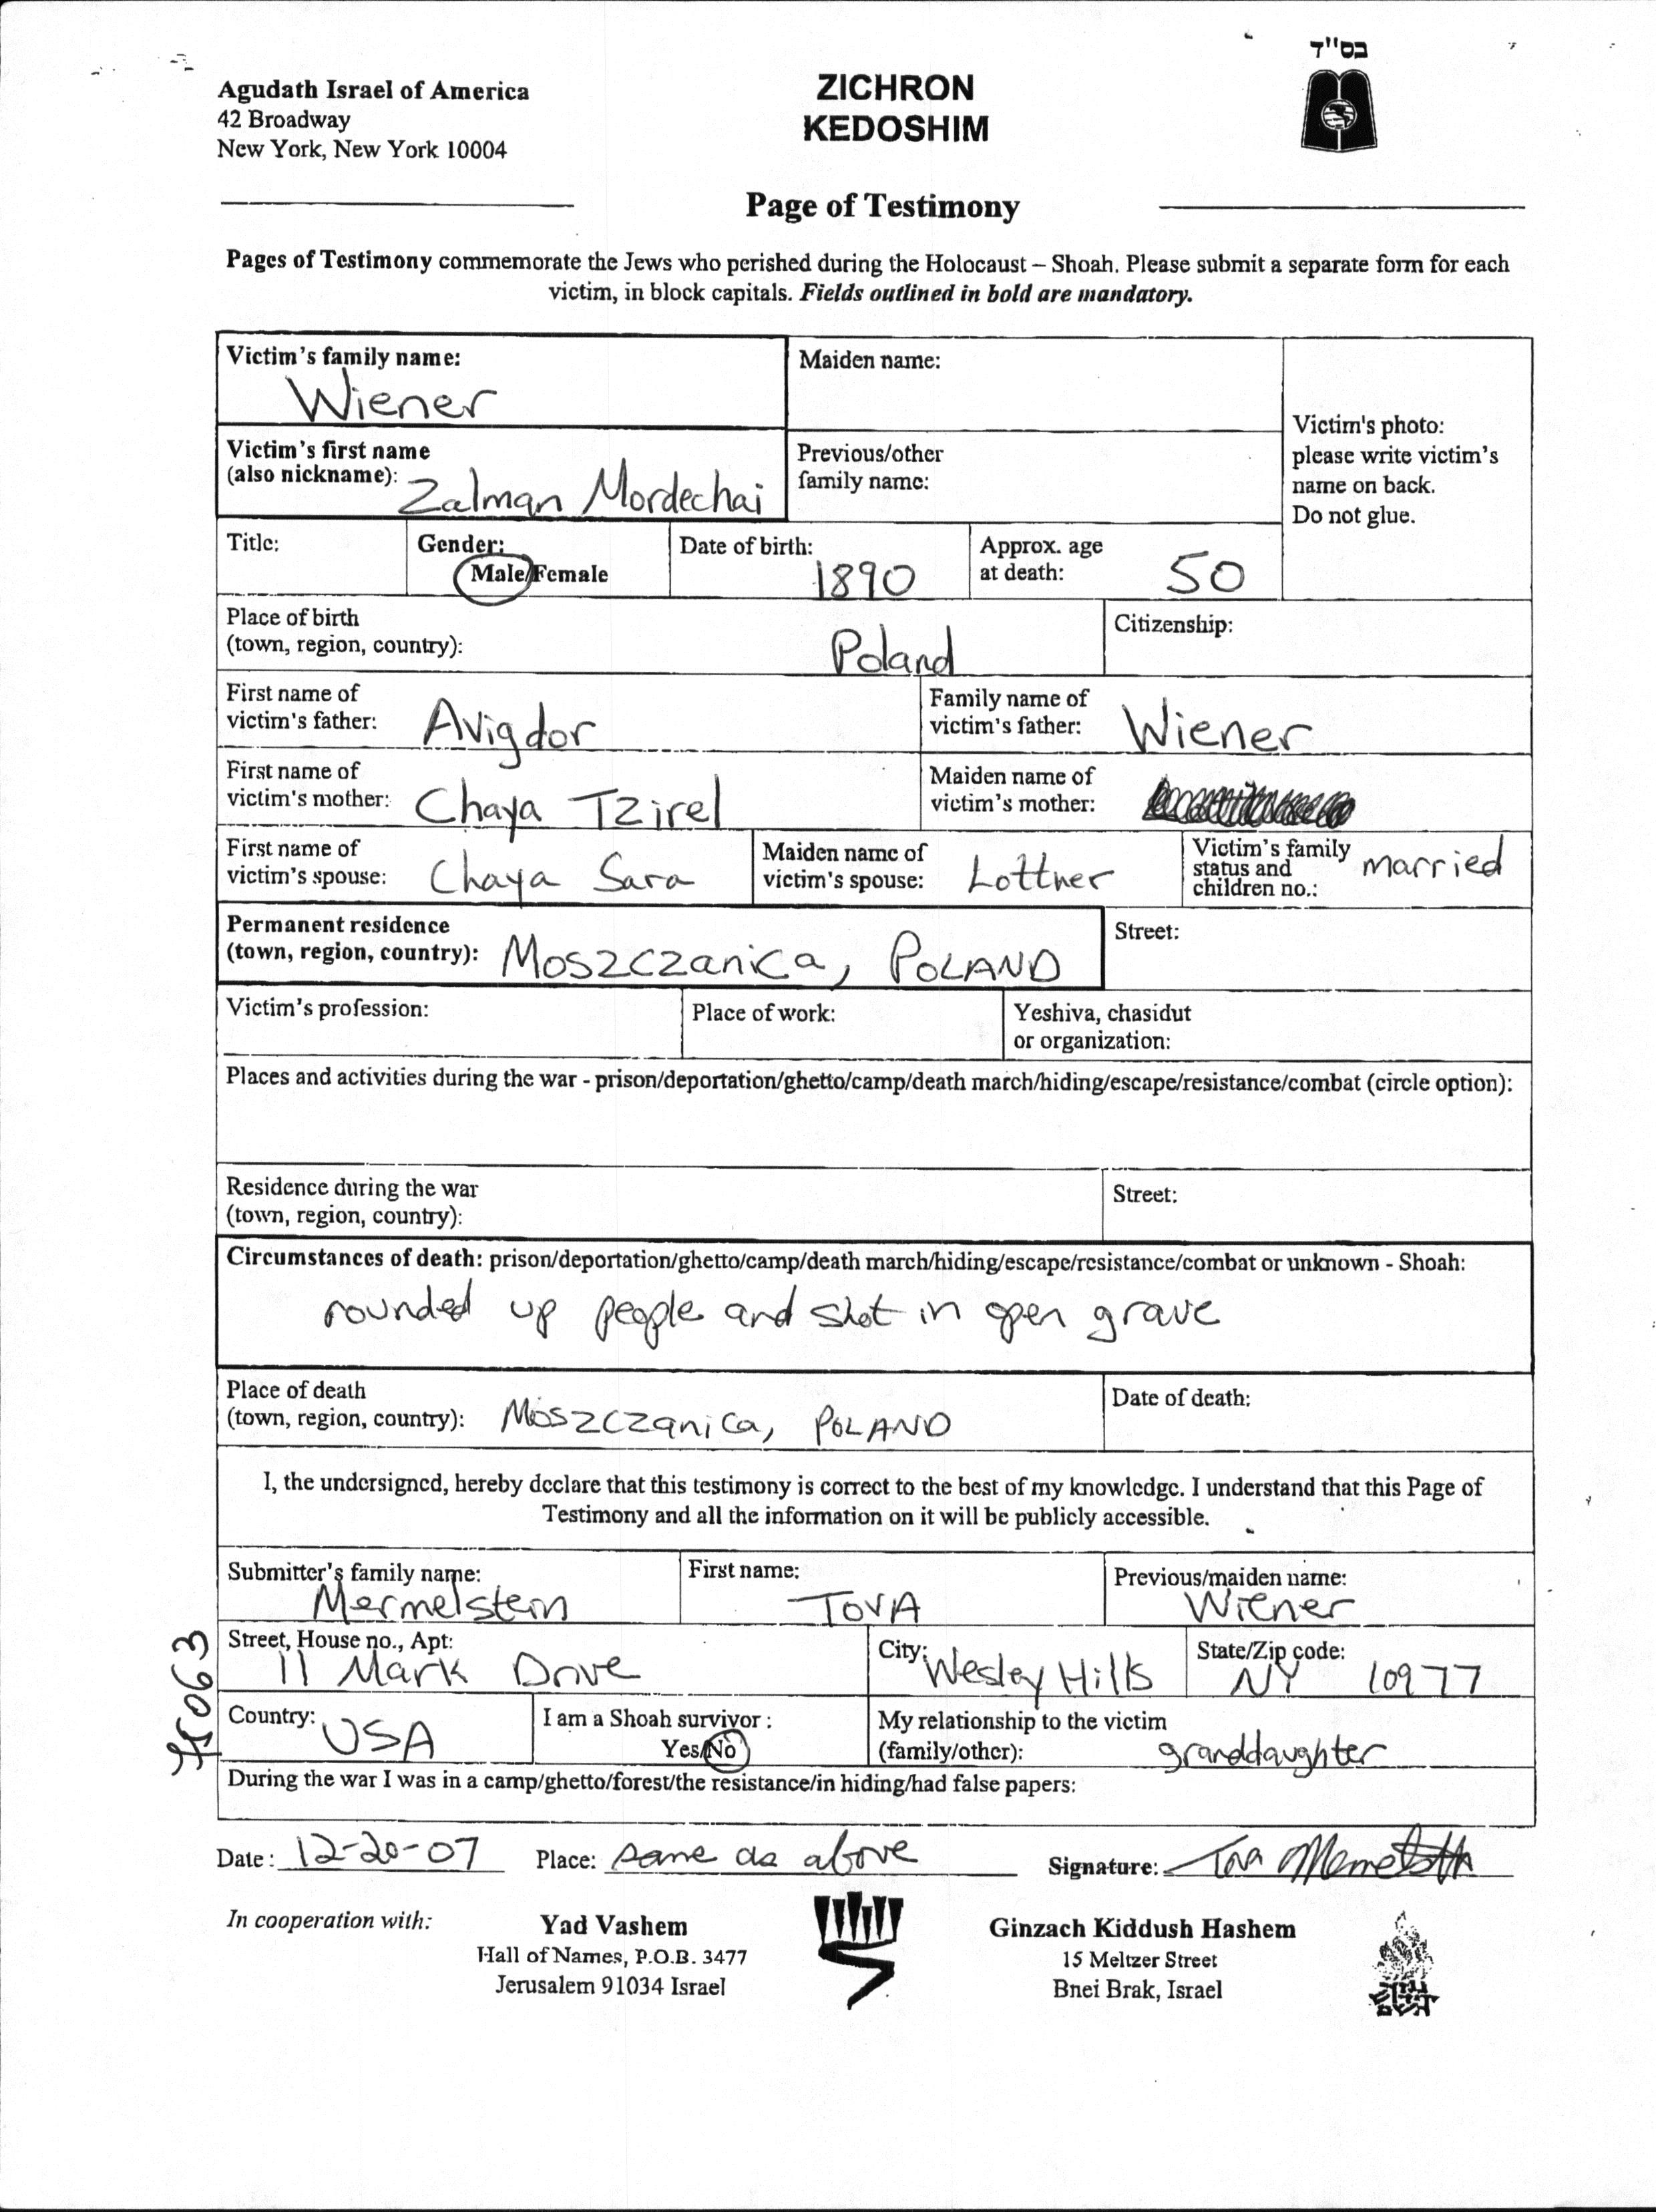 בס"ד
Agudath Israel of America
42 Broadway
New York, New York 10004
ZICHRON
KEDOSHIM
Page of Testimony
Pages of Testimony commemorate the Jews who perished during the Holocaust – Shoah. Please submit a separate form for each
victim, in block capitals. Fields outlined in bold are mandatory.
Victim's family name:
Wiener
Maiden name:
Victim's photo:
please write victim's
name on back.
Do not glue.
Victim's first name
(also nickname): Zalman Mordechai
Previous/other
family name:
Title:
Gender:
Male/Female
Date of birth:
1890
Approx. age
at death: 50
Place of birth
(town, region, country): Poland
Citizenship:
First name of
victim's father: Avigdor
Family name of
victim's father: Wiener
First name of
victim's mother: Chaya Tzirel
Maiden name of
victim's mother:
First name of
victim's spouse: Chaya Sara
Maiden name of
victim's spouse: Lottner
Victim's family
status and
children no.: married
Permanent residence
(town, region, country): Moszczanica, POLAND
Street:
Victim's profession:
Place of work:
Yeshiva, chasidut
or organization:
Places and activities during the war - prison/deportation/ghetto/camp/death march/hiding/escape/resistance/combat (circle option):
Residence during the war
(town, region, country):
Street:
Circumstances of death: prison/deportation/ghetto/camp/death march/hiding/escape/resistance/combat or unknown - Shoah:
rounded up people and shot in open grave
Place of death
(town, region, country): Moszczanica, POLAND
Date of death:
I, the undersigned, hereby declare that this testimony is correct to the best of my knowledge. I understand that this Page of
Testimony and all the information on it will be publicly accessible.
Submitter's family name:
Mermelstein
First name:
TOVA
Previous/maiden name:
Wiener
Street, House no., Apt:
11 Mark Drive
City: Wesley Hills
State/Zip code:
NY 10977
Country: USA
I am a Shoah survivor :
Yes/No
My relationship to the victim
(family/other): granddaughter
During the war I was in a camp/ghetto/forest/the resistance/in hiding/had false papers:
Date: 12-20-07 Place: same as above Signature: Tova Mermelstein
In cooperation with:
Yad Vashem
Hall of Names, P.O.B. 3477
Jerusalem 91034 Israel
Ginzach Kiddush Hashem
15 Meltzer Street
Bnei Brak, Israel